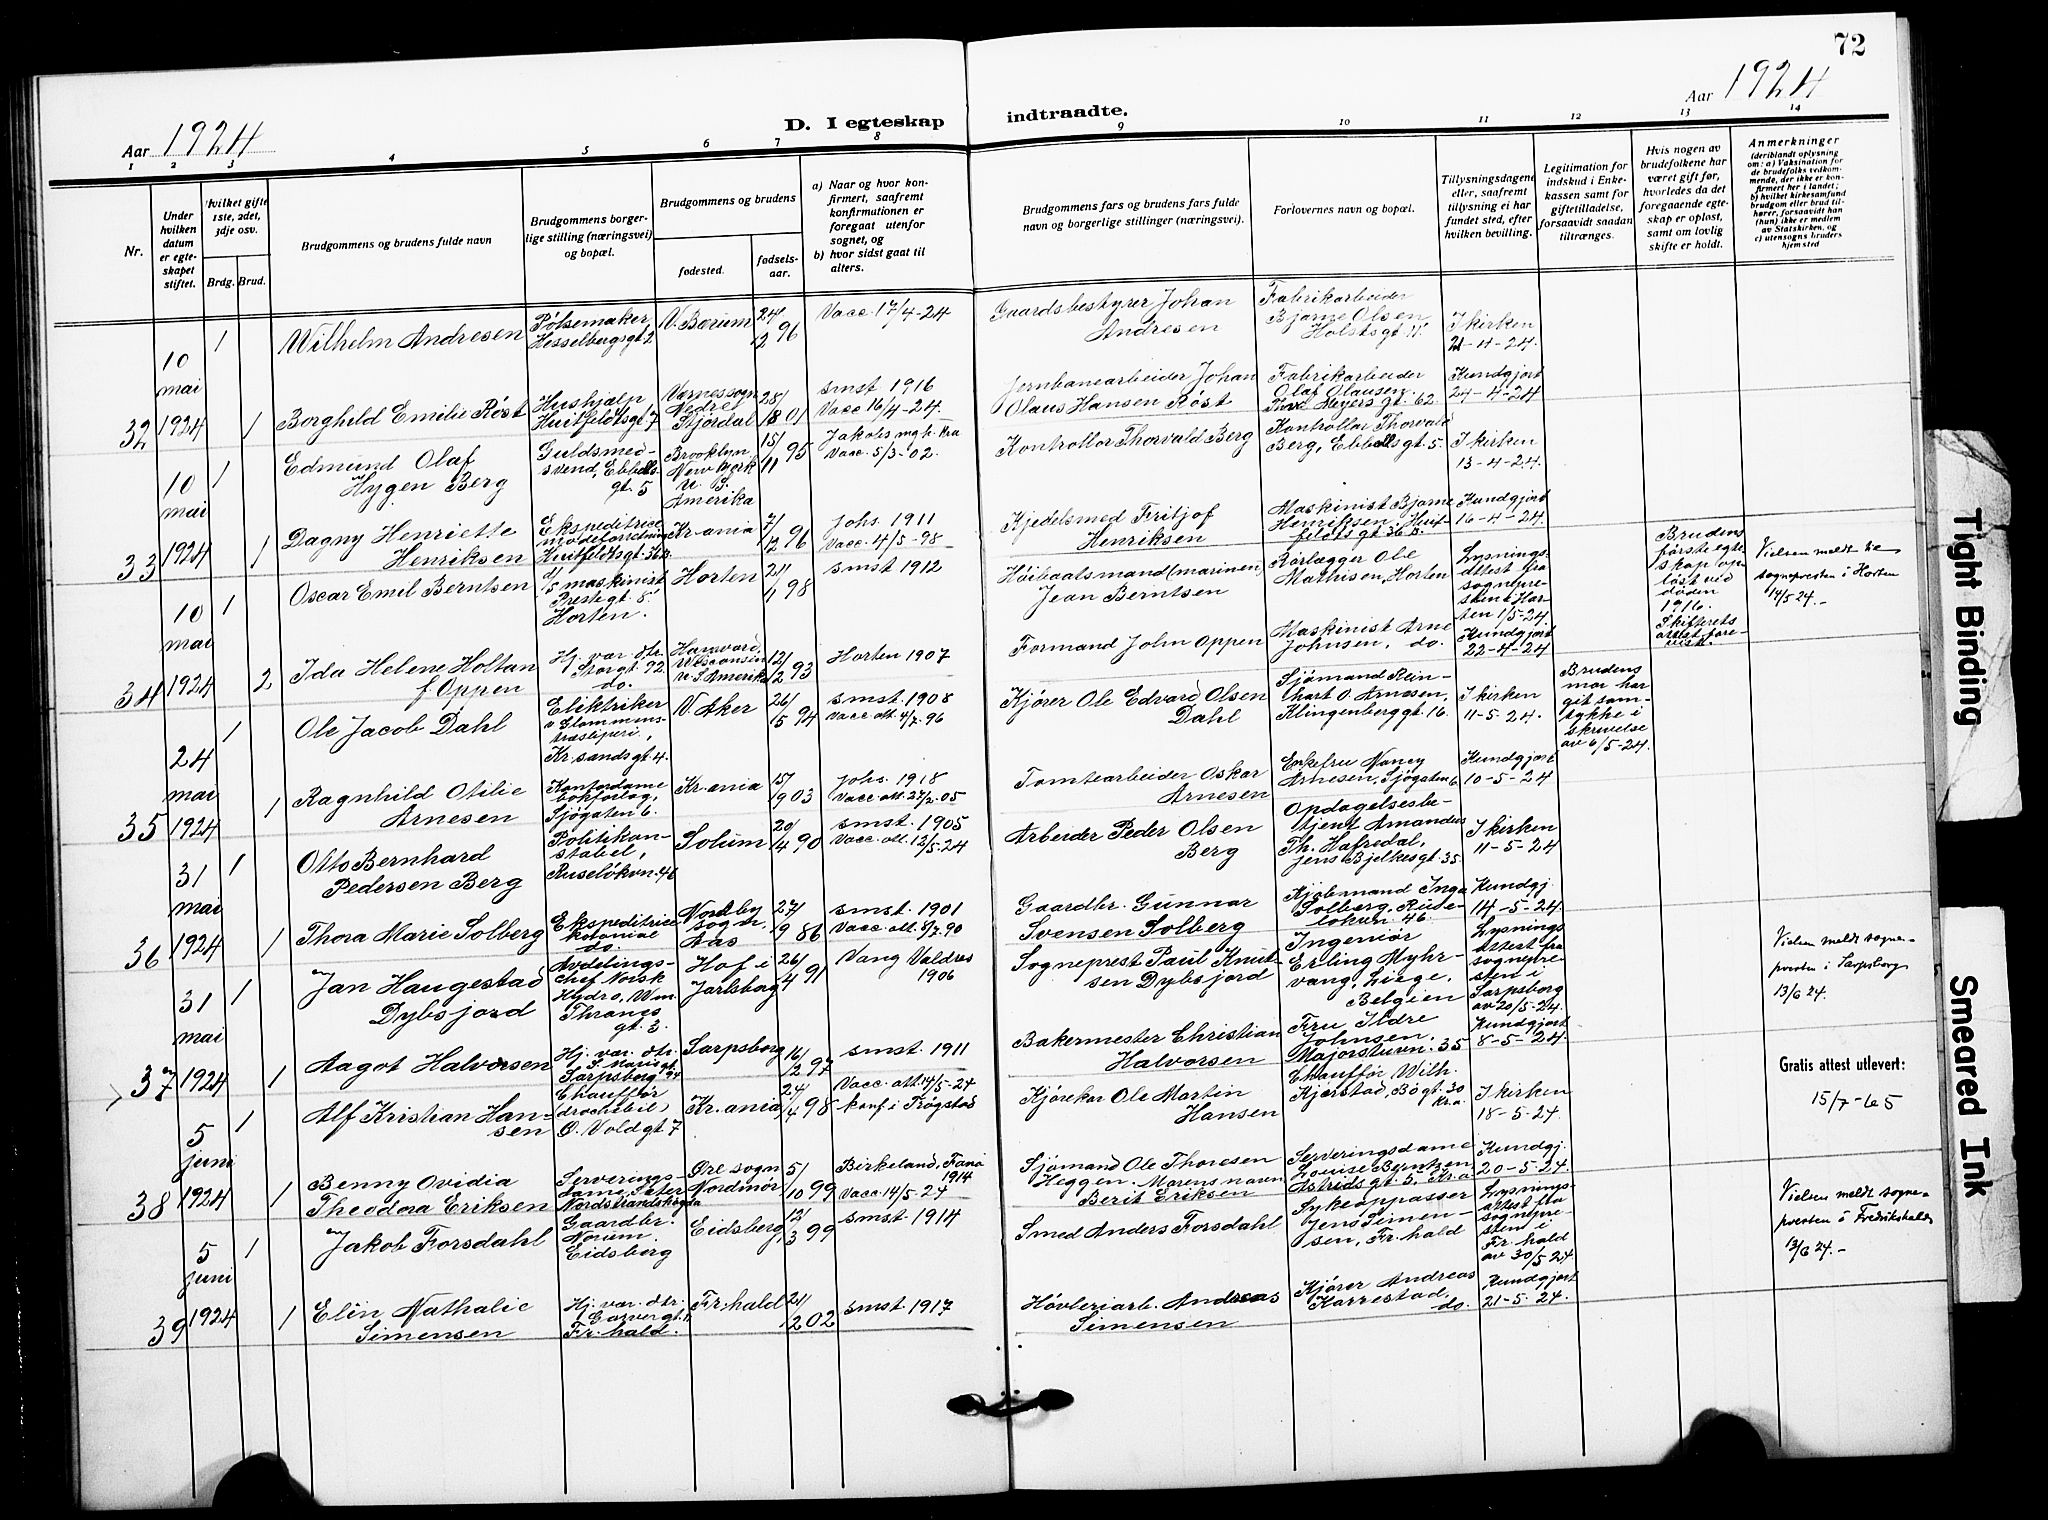 72
Aar 1924
D. I egteskap indtraadte.
Aar 1924
1 2 3 4 5 6 7 8 9 10 11 12 13 14
Nr.
Under
hvilken
datum
er egte-
skapet
stiftet.
Hvilket gifte
1ste, 2det,
3dje osv.
Brdg. Brud.
Brudgommens og brudens fulde navn
Brudgommens borger-
lige stilling (næringsvei)
og bopæl.
Brudgommens og brudens
fødested.
fødsels-
aar.
a) Naar og hvor kon-
firmert, saafremt
konfirmationen er
foregaat utenfor
sognet, og
b) hvor sidst gaat til
alters.
Brudgommens fars og brudens fars fulde
navn og borgerlige stillinger (næringsvei).
Forlovernes navn og bopæl.
Tillysningsdagene
eller, saafremt
tillysning ei har
fundet sted, efter
hvilken bevilling.
Legitimation for
indskud i Enke-
kassen samt for
giftetilladelse,
forsaavidt saadan
tiltrænges.
Hvis nogen av
brudefolkene har
været gift før,
hvorledes da det
foregaaende egte-
skap er opløst,
samt om lovlig
skifte er holdt.
Anmerkninger
(deriblandt oplysning
om: a) Vaksination for
de brudefolks vedkom-
mende, der ikke er kon-
firmert her i landet;
b) hvilket kirkesamfund
brudgom eller brud til-
hører, forsaavidt han
(hun) ikke er medlem
av Statskirken, og
c) utensogns bruders
hjemsted
32
10
mai
1924
1
Wilhelm Andresen
Pølsemaker
Hesselbergsgt. 2
V. Borum
24/12 96
Vacc. 17/4-24
Gaardsbestyrer Johan
Andresen
Fabrikarbeider
Bjarne Olsen
Holstsgt. 11.
I kirken
21-4-24.
1
Borghild Emilie Røst
Hushjælp
Huitfeldtsgt. 7
Værnes sogn
Nedre
Stjørdal
28/8 01
smst 1916
Vacc 16/4-24.
Jernbanearbeider Johan
Olaus Hansen Røst
Fabrikarbeider
Olaf Olausen,
Thv. Meyers gt. 62
Kundgjort
24-4-24
33
10
mai
1924
1
Edmund Olaf
Hygen Berg
Guldsmed-
svend, Ebbells-
gt. 5
Brooklyn
New York
U. S.
Amerika
15/11 95
Jakobs mgh. Kra
Vacc. 5/3-02.
Kontrollør Thorvald Berg
Kontrollør Thorvald
Berg, Ebbellsgt. 5.
I kirken
13-4-24.
1
Dagny Henriette
Henriksen
Ekspeditrice
modeforretning
Huitfeldtsgt. 36 B.
Kr.ania
7/12 96
Johs. 1911
Vacc. 4/5-98
Kjedelsmed Fritjof
Henriksen
Maskinist Bjarne
Henriksen, Huit-
feldtsgt 36 B.
Kundgjort
16-4-24.
34
10
mai
1924
1
Oscar Emil Berntsen
maskinist
Prestegt. 8
Horten.
Horten
21/1 98
smst 1912
Høibaatsmand (marinen)
Jean Berntsen
Rørlægger Ole
Mathisen, Horten
Lysnings-
attest fra
sognepre-
sten i Hor-
ten 1/5-24.
Brudens
første egte
skap op-
løst ved
døden
1916.
Skifterets
attest fore-
vist.
Vielsen meldt til
sognepresten i Horten
14/5 24.-
2
Ida Helene Holtan
f. Oppen
Hj. vær. dtr.
Storgt. 92.
do.
Wisconsin
U. S. Amerika
12/2 93
Horten 1907
Formand John Oppen
Maskinist Arne
Johnsen, do.
Kundgjort
22-4-24
35
24
mai
1924
1
Ole Jacob Dahl
Elektriker
v Glommens
træsliperi,
Kr.sandsgt. 4.
V. Aker
26/5 94
smst 1908
Vacc. att. 4/7-96
Kjører Ole Edvard Olsen
Dahl
Sjømand Rein-
hart O. Arnesen,
Klingenberggt. 16.
I kirken
11-5-24.
Brudens
mor har
git sam-
tykke i
skrivelse
av 6/5-24.
1
Ragnhild Otilie
Arnesen
Kontordame
bokforlag,
Sjøgaten 6.
Kr.ania
15/9 03
Johs. 1918
Vacc. att. 27/2-05
Tomtearbeider Oskar
Arnesen
Enkefru Nancy
Arnesen, Sjøgaten 6
Kundgjort
10-5-24
36
31
mai
1924
1
Otto Bernhard
Pedersen Berg
Politikon-
stabel,
Ruseløkvn. 46
Solum
20/4 90
smst. 1905
Vacc. att. 12/5-24
Arbeider Peder Olsen
Berg
Opdagelsesbe-
tjent Amandus
Th. Hafredal,
Jens Bjelkesgt. 35.
I kirken
11-5-24
1
Thora Marie Solberg
Ekspeditrice
kolonial
do.
Nordby
sogn,
Aas
27/9 86
smst. 1901
Vacc. att. 8/7-90
Gaardbr. Gunnar
Svensen Solberg
Kjøbmand Inga
Solberg, Ruse-
løkvn. 46.
Kundgj.
14-5-24.
37
31
mai
1924
1
Jan Haugestad
Dybsjord
Avdelings-
chef Norsk
Hydro, Wm
Thranes
gt. 3.
Hof i
Jarlsberg
26/4 91
Vang Valdres
1906
Sogneprest Paul Knut-
sen Dybsjord
Ingeniør
Erling Myhr-
vang, Liege,
Belgien
Lysnings
attest fra
sognepre-
sten i
Sarpsborg
av 20/5-24.
Vielsen meldt sogne-
presten i Sarpsborg
13/6 24.
1
Aagot Halvorsen
Hj. vær. dtr.
St. Mariegt.
Sarpsborg 94
Sarpsborg
16/2 97
smst. 1911
Bakermester Christian
Halvorsen
Fru Ildre
Johnsen,
Majorstuvn. 35
Kundgjort
8-5-24.
Gratis attest utlevert:
15/7-65
38
5
juni
1924
1
Alf Kristian Han-
sen
Chauffør
drochebil,
O. Voldgt. 7
Kr.ania
24/4 98
Vacc. att. 14/5-24
konf. i Trøgstad
Kjørekar Ole Martin
Hansen
Chauffør Wilh.
Kjerstad, Bøgt. 30
Kr.a.
I kirken
18-5-24.
1
Benny Ovidia
Theodora Eriksen
Serverings-
dame, Sæter
Nordstrandskogen
Øre sogn
Nordmør
5/10 99
Birkeland, Fana
1914
Vacc. 14/5-24
Sjømand Ole Thoresen
Heggen. Morens navn
Berit Eriksen
Serveringsdame
Louise Berntzen,
Astridsgt. 5. Kr.a
Kundgj.
20-5-24.
39
5
juni
1924
1
Jakob Forsdahl
Gaardbr.
Norum.
Eidsberg
Eidsberg,
12/3 99
smst 1914
Smed Anders Forsdahl
Sykeoppasser
Jens Simen-
sen, Fr.hald
Lysnings-
attest fra
sognepre-
sten i
Fr. hald
av 30/5-24
Vielsen meldt sogne-
presten i Fredrikshald
13/6 24.-
1
Elin Nathalie
Simensen
Hj. vær. dtr.
Garvergt. 11
Fr. hald.
Fr. hald
21/2 02
smst 1917
Høvleriarb. Andreas
Simensen
Kjører Andreas
Karrestad,
do.
Kundgjort
21-5-24.
Tight Binding
Smeared Ink